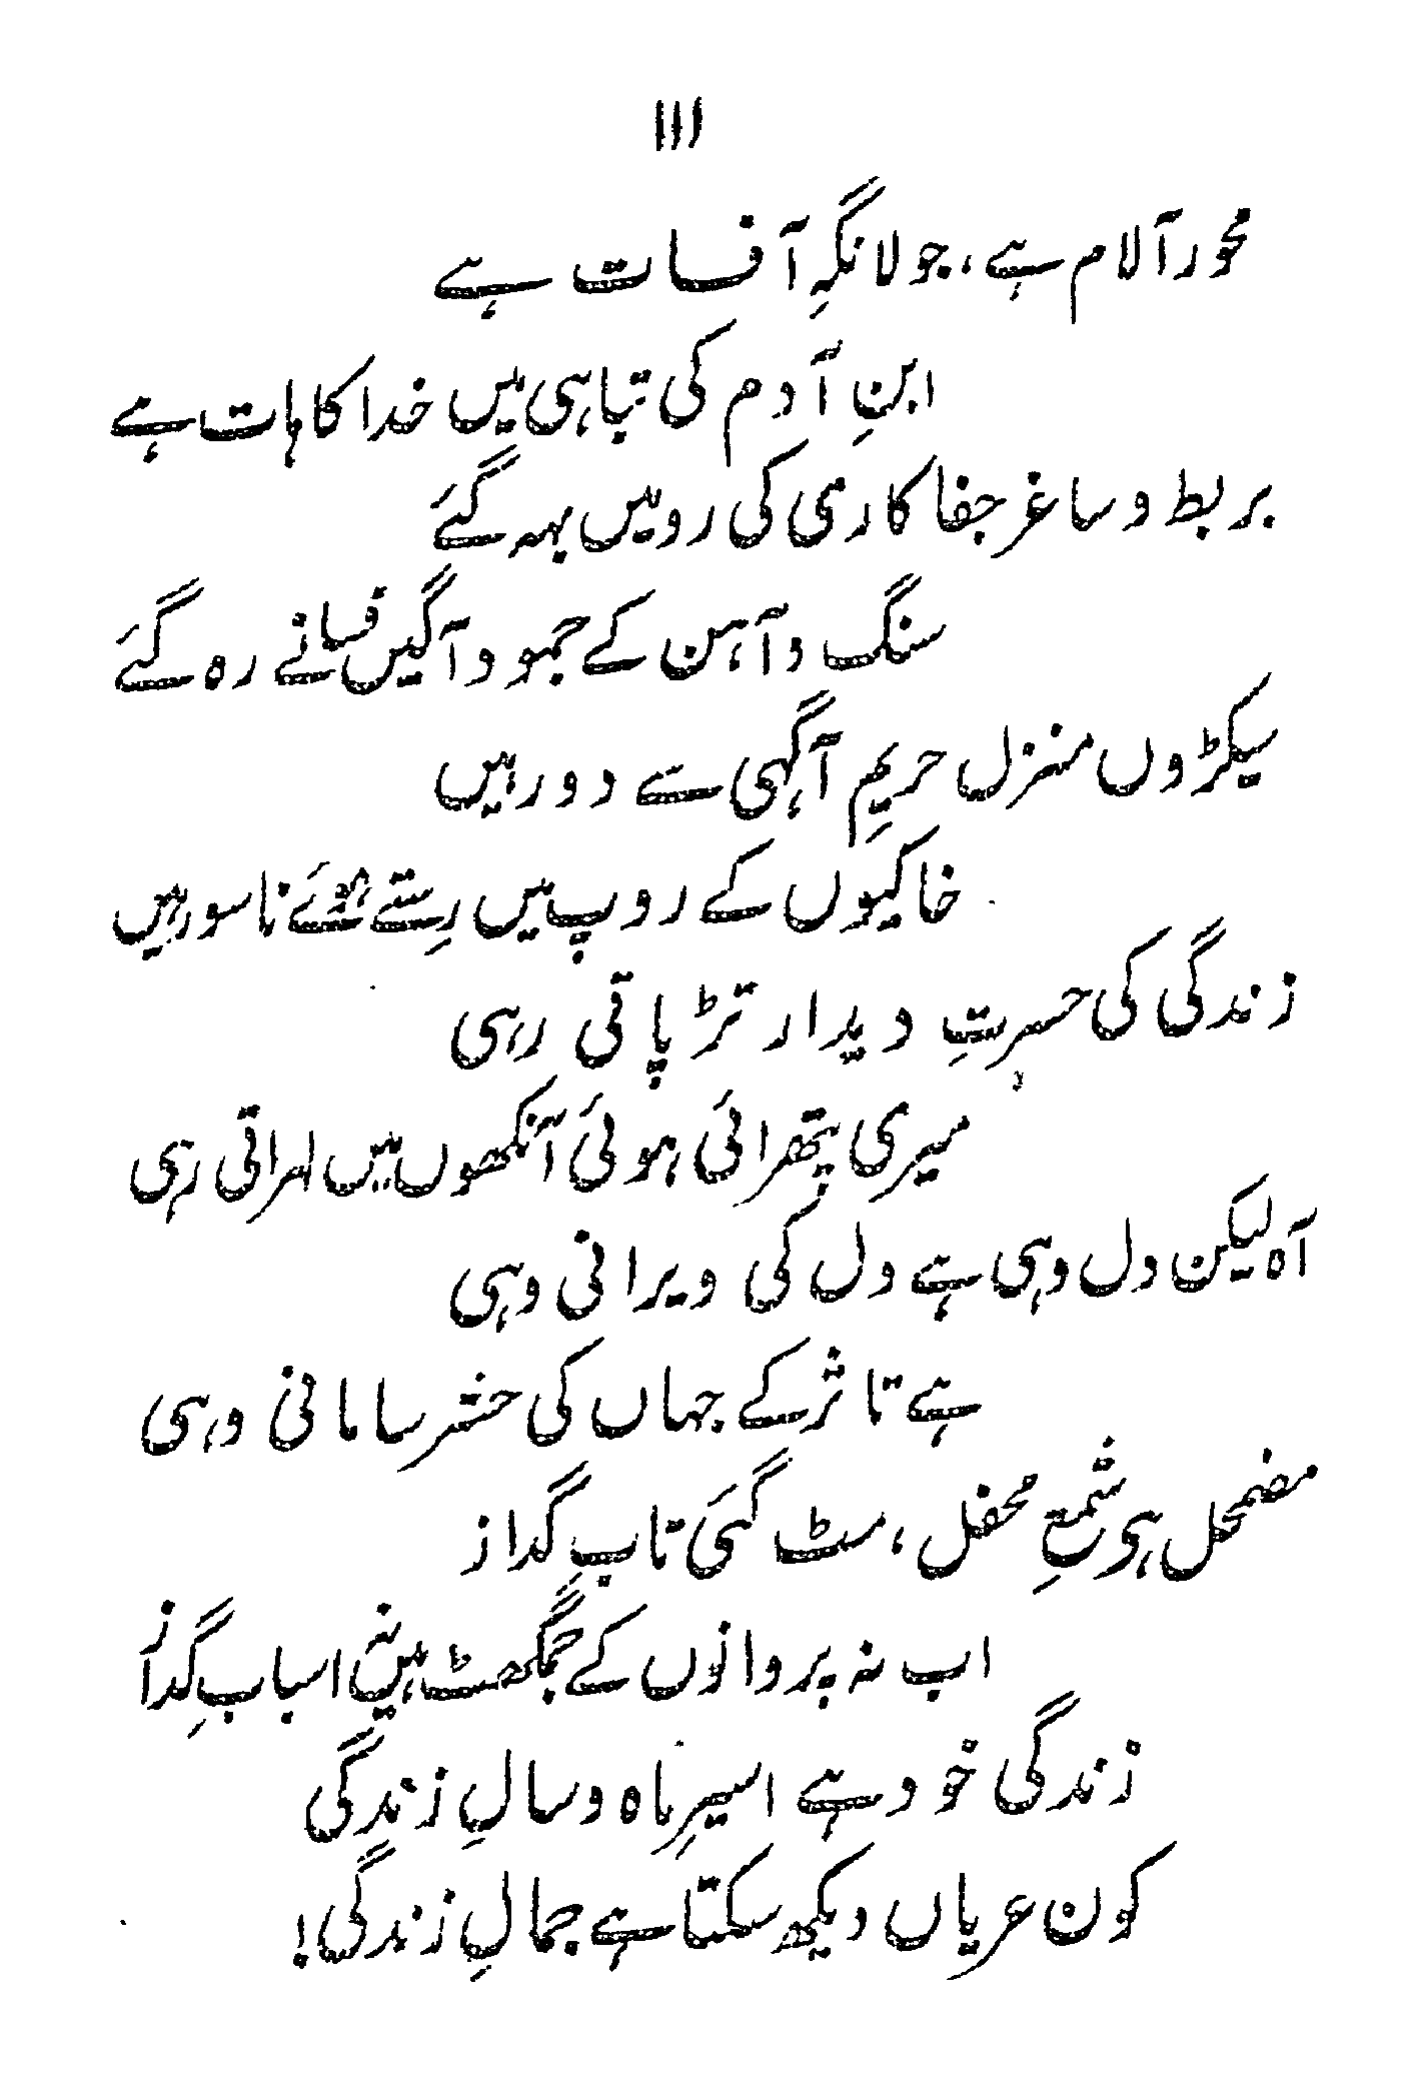 ۱۱۱
محورِ آلام ہے، جولانگہِ آفات ہے
ابنِ آدم کی تباہی میں خدا کا ہات ہے
بربط و ساغر جفا کاری کی رو میں بہہ گئے
سنگ و آہن کے جمود آگیں فسانے رہ گئے
سیکڑوں منزل حریمِ آگہی سے دور ہیں
خاکیوں کے روپ میں رِستے ہوئے ناسور ہیں
زندگی کی حسرتِ دیدار تڑپاتی رہی
میری پتھرائی ہوئی آنکھوں میں لہراتی رہی
آہ لیکن دل وہی ہے دل کی ویرانی وہی
ہے تاثر کے جہاں کی حشر سامانی وہی
مضمحل ہو شمعِ محفل، مٹ گئی تابِ گداز
اب نہ پروانوں کے جمگھٹ ہیں نہ اسبابِ گداز
زندگی خود ہے اسیرِ ماہ و سالِ زندگی
کون عریاں دیکھ سکتا ہے جمالِ زندگی!